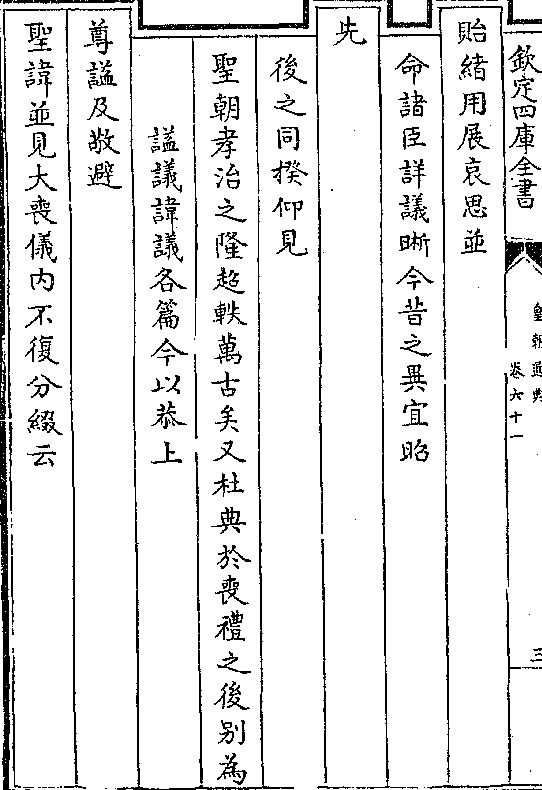 欽定四庫全書
皇朝通典
卷六十一
三
貽緒用展哀思並
命諸臣詳議晰今昔之異宜昭
先
後之同揆仰見
聖朝孝治之隆超軼萬古矣又杜典於喪禮之後别為
諡議諱議各篇今以恭上
尊諡及敬避
聖諱並見大喪儀内不復分綴云